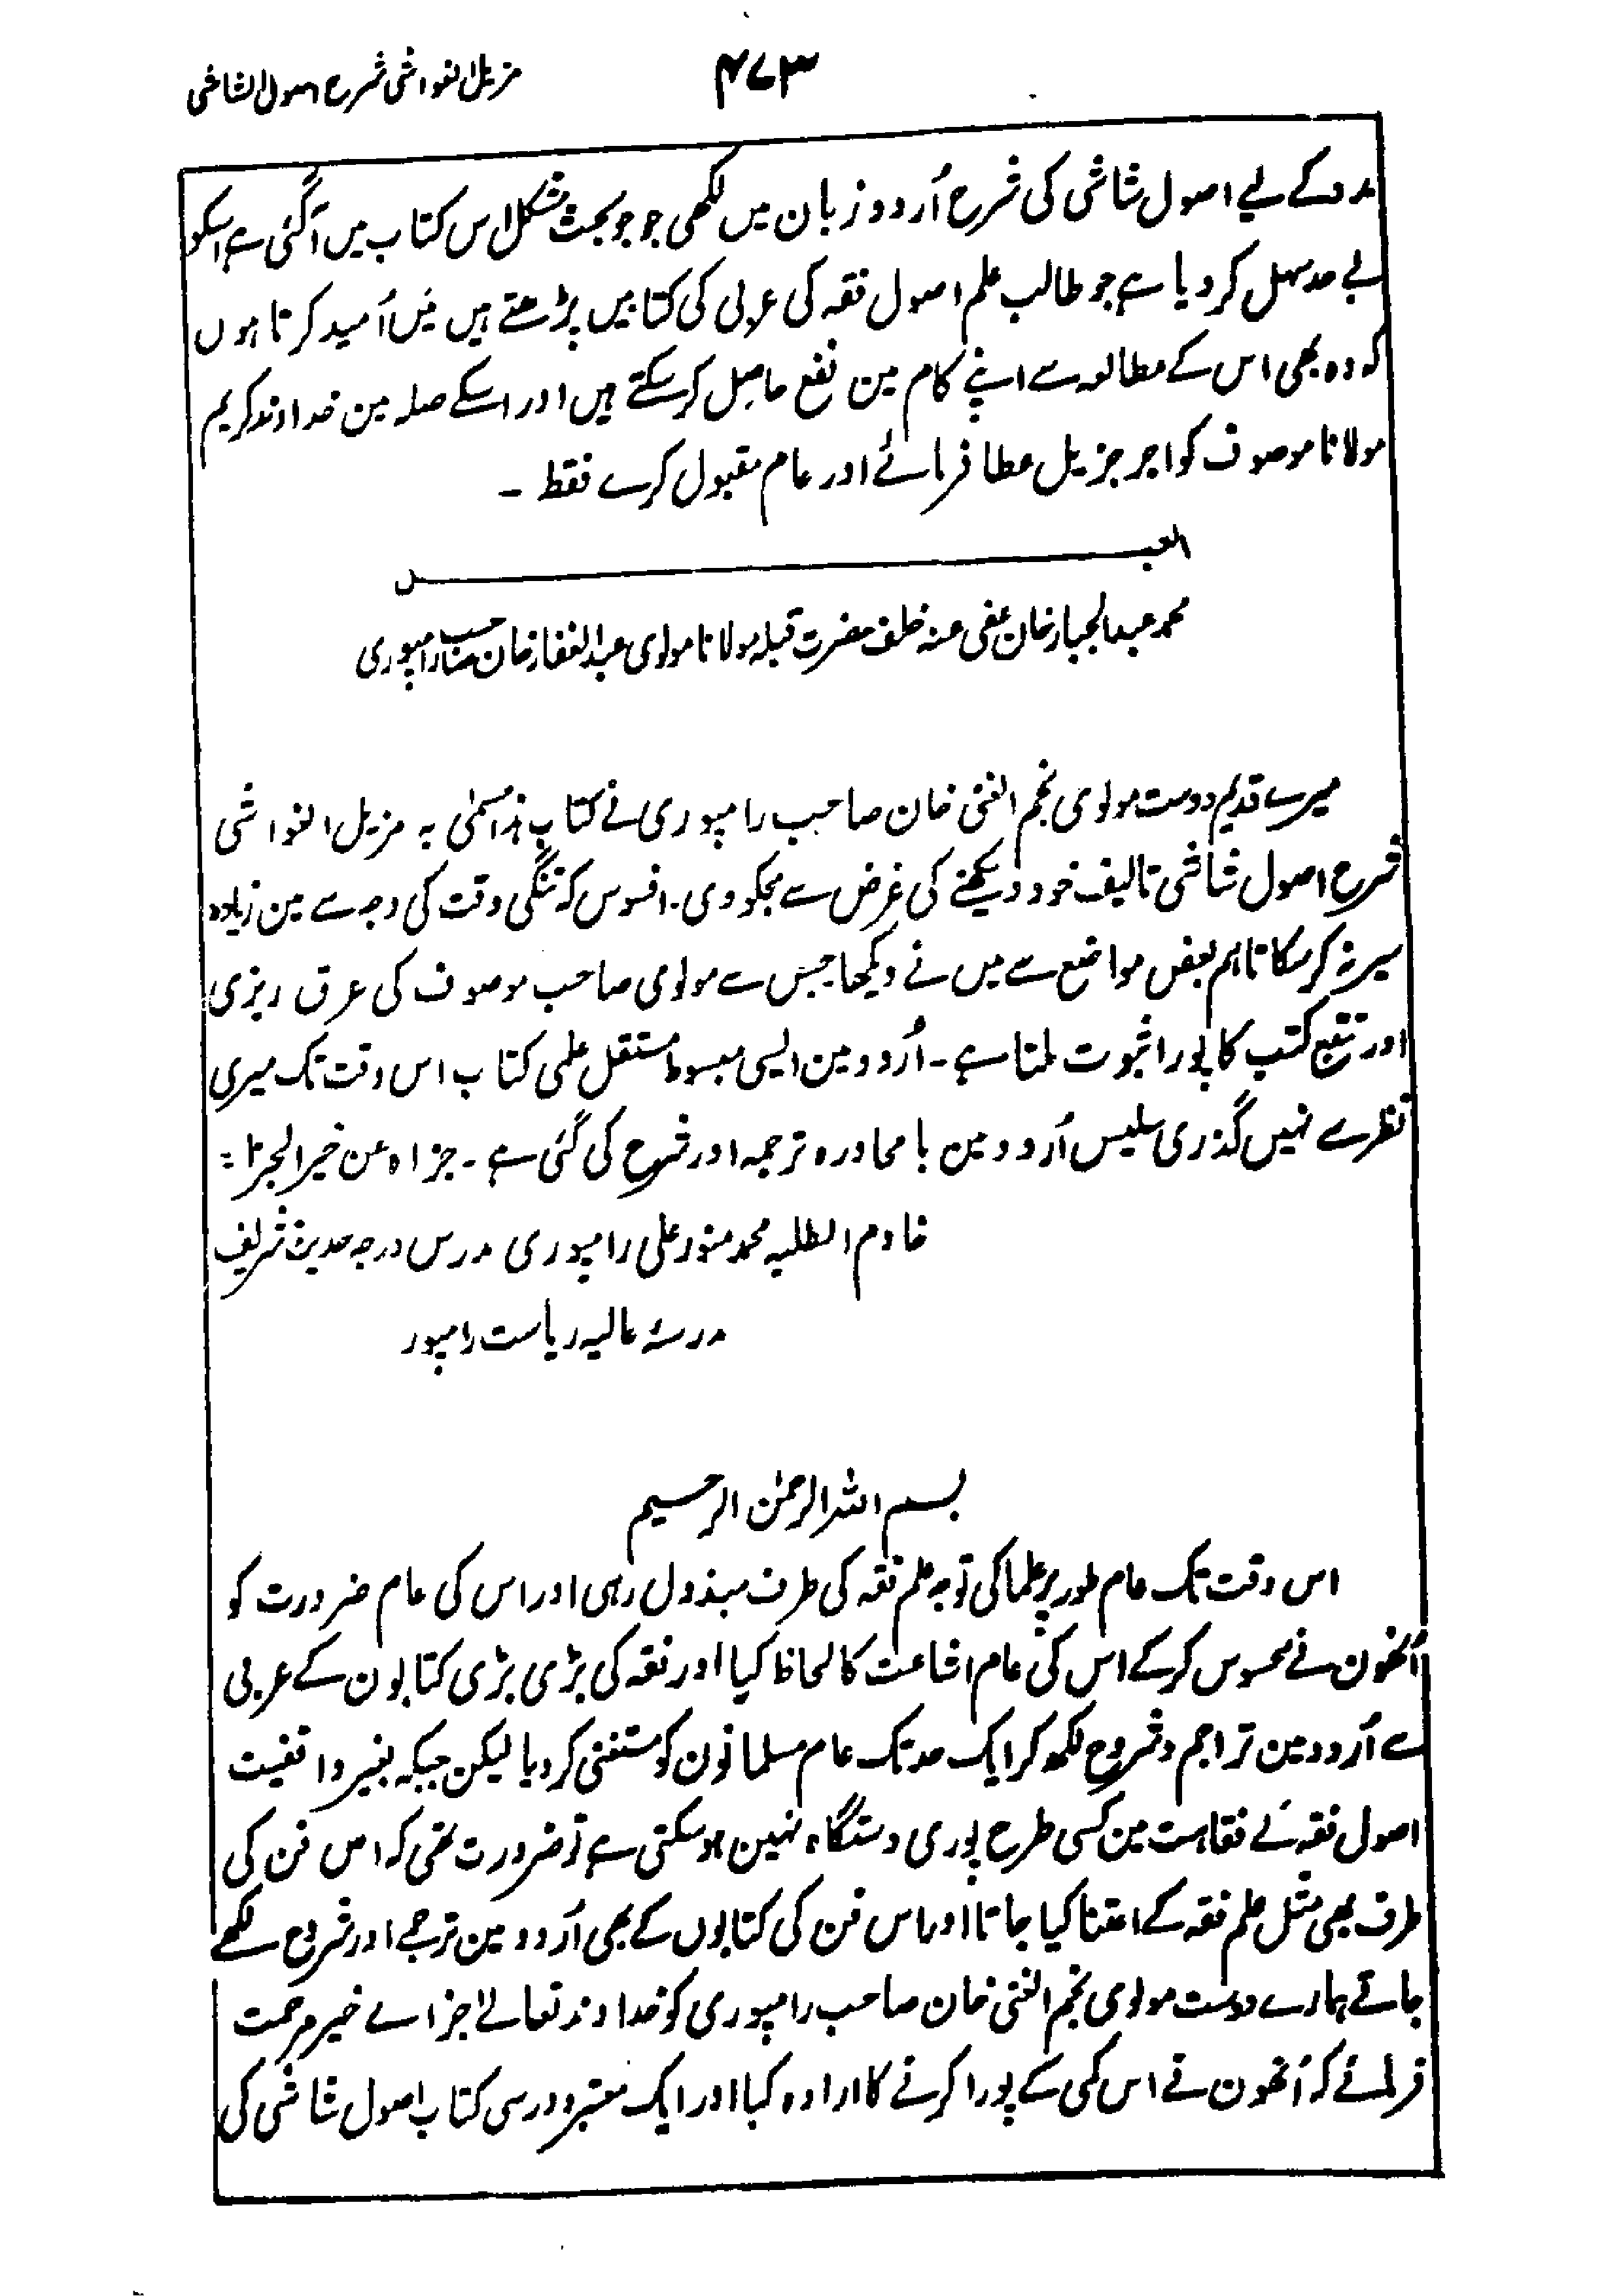 مزیل الغواشی شرح اصول الشاشی
۴۷۳
مدد کے لیے اصول شاشی کی شرح اُردو زبان میں لکھی جو جو بحث مشکل اس کتاب میں آگئی ہے اسکو
بے حد سہل کر دیا ہے جو طالب علم اصول فقہ کی عربی کی کتابیں پڑھتے ہیں میں اُمید کرتا ہوں
کہ وہ بھی اس کے مطالعہ سے اپنے کام مین نفع حاصل کر سکتے ہیں اور اسکے صلہ مین خداوند کریم
مولانا موصوف کو اجر جزیل عطا فرمائے اور عام مقبول کرے فقط ۔
العبـــــــد
محمد عبدالجبار خان عفی عنہ خلف حضرت قبلہ مولانا مولوی عبدالغفار خان صاحب رامپوری
میرے قدیم دوست مولوی نجم الغنی خان صاحب رامپوری نے کتاب ہذا مسمی بہ مزیل الغواشی
شرح اصول شاشی تالیف خود دیکھنے کی غرض سے مجکو دی۔ افسوس کہ تنگی وقت کی وجہ سے مین زیادہ
سیر نہ کر سکا تاہم بعض مواضع سے میں نے دیکھا جس سے مولوی صاحب موصوف کی عرق ریزی
اور تتبع کتب کا پورا ثبوت ملتا ہے ۔ اُردو مین ایسی مبسوط مستقل علمی کتاب اس وقت تک میری
نظر سے نہیں گذری سلیس اُردو مین با محاورہ ترجمہ اور شرح کی گئی ہے ۔ جزاہ عن خیر الجزا :
خادم الطلبہ محمد منور علی رامپوری مدرس درجہ حدیث شریف
مدرسۂ عالیہ ریاست رامپور
بسم اللہ الرحمٰن الرحیم
اس وقت تک عام طور پر علما کی توجہ علم فقہ کی طرف مبذول رہی اور اس کی عام ضرورت کو
اُنھون نے محسوس کرکے اس کی عام اشاعت کا لحاظ کیا اور فقہ کی بڑی بڑی کتابون کے عربی
سے اُردو مین تراجم و شروح لکھ کر ایک حد تک عام مسلمانون کو مستغنی کر دیا لیکن جبکہ بغیر واقفیت
اصول فقہ کے فقاہت مین کسی طرح پوری دستگاہ نہین ہو سکتی ہے تو ضرورت تھی کہ اس فن کی
طرف بھی مثل علم فقہ کے اعتنا کیا جاتا اور اس فن کی کتابوں کے بھی اُردو مین ترجمے اور شروح لکھے
جاتے ہمارے دوست مولوی نجم الغنی خان صاحب رامپوری کو خداوند تعالے جزاے خیر مرحمت
فرمائے کہ اُنھون نے اس کمی کے پورا کرنے کا ارادہ کیا اور ایک معتبر و درسی کتاب اصول شاشی کی